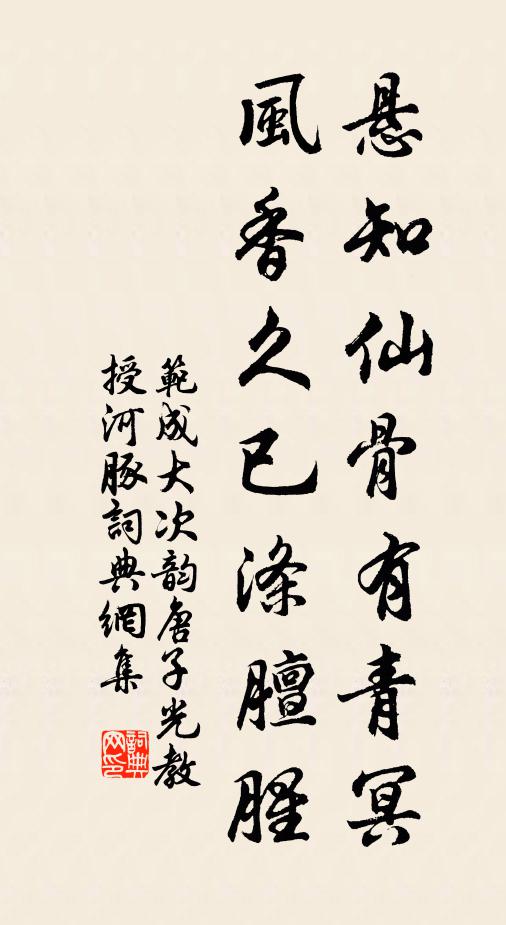 悬知仙骨有青冥
風香久已涤膻腥
範成大次韵唐子光教
授河豚詞典網集
詞典
网印